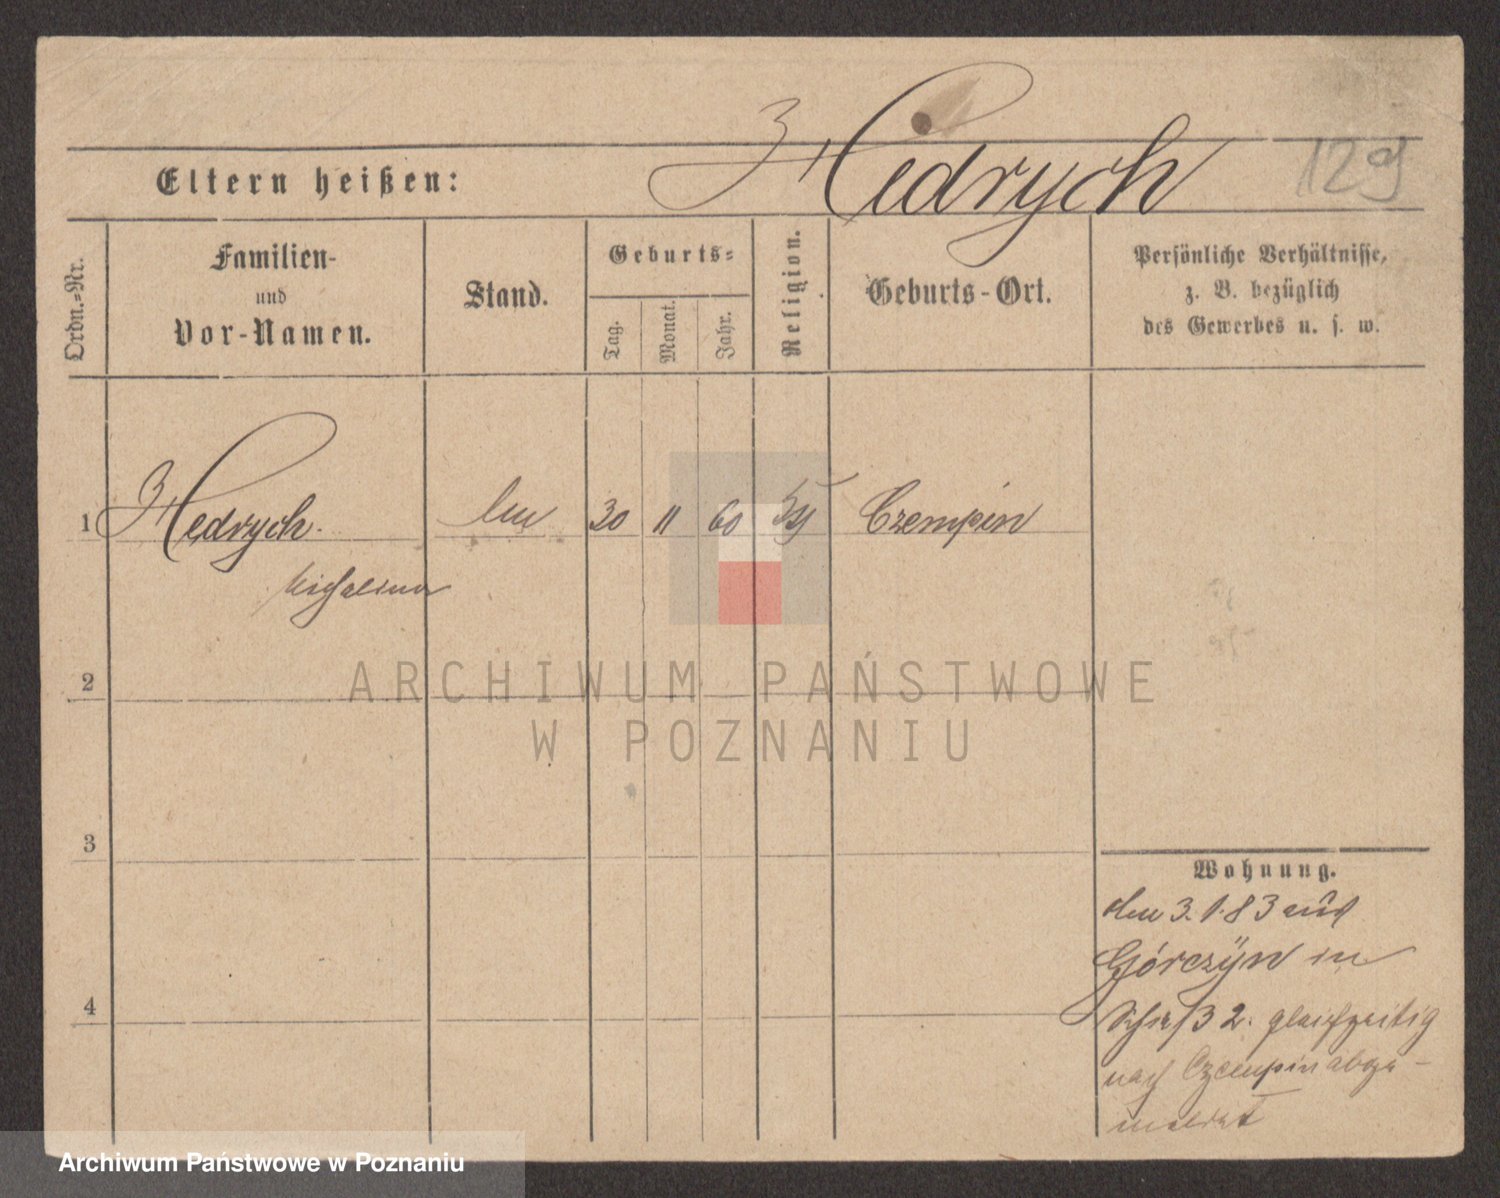 Hedrych
129
Eltern heißen:
Ordn.=Nr.
Familien-
und
Vor-Namen.
Stand.
Geburts=
Tag.
Monat.
Jahr.
Religion.
Geburts-Ort.
Persönliche Verhältnisse,
z. B. bezüglich
des Gewerbes u. s. w.
1 Hedrych. 30 11 60 Czempin
Michalina
2
ARCHIWUM PAŃSTWOWE
W POZNANIU
3
4
Wohnung.
den 3.1.83 aus
Górczyn in
2. gleichzeitig
nach Czempin abge-
meldet
Archiwum Państwowe w Poznaniu